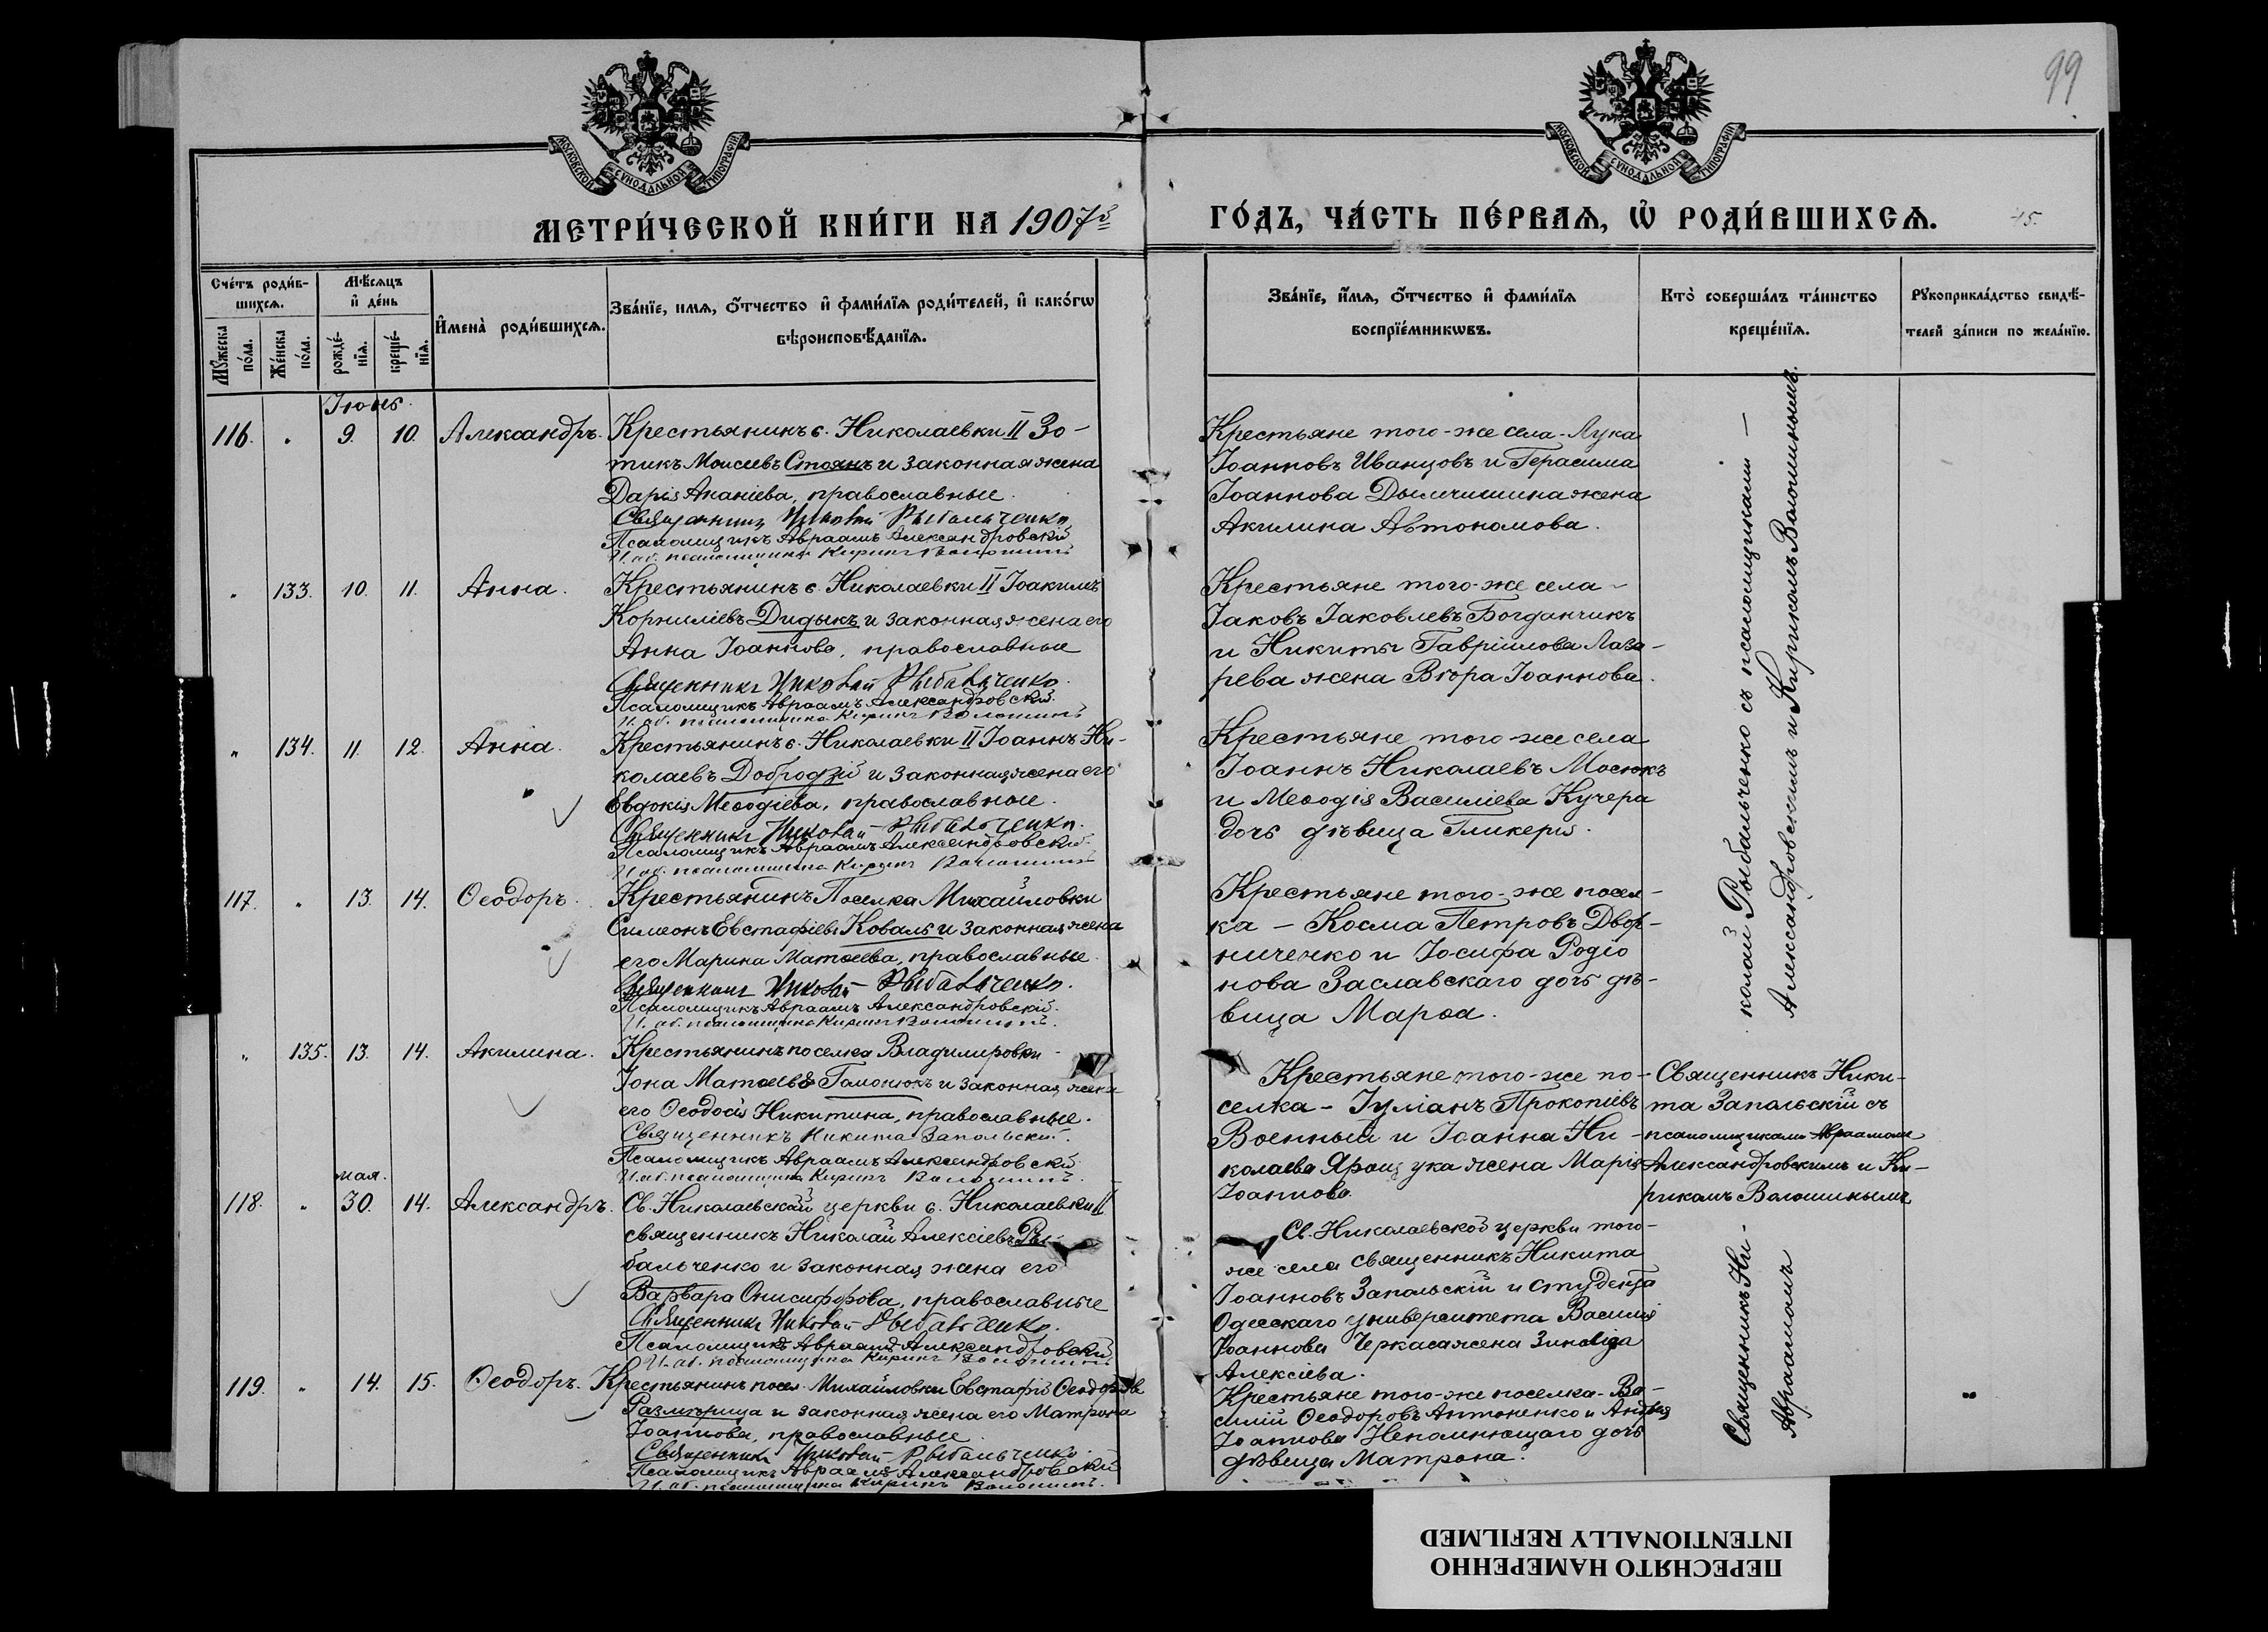 99
МОСКОВСКОЙ СѴНОДАЛЬНОЙ ТИПОГРАФІИ
МОСКОВСКОЙ СѴНОДАЛЬНОЙ ТИПОГРАФІИ
МЕТРИ́ЧЕСКОЙ КНИ́ГИ НА 1907й
ГО́ДЪ, ЧА́СТЬ ПЕ́РВАѦ, Ѡ҆ РОДИ́ВШИХСѦ.
Сче́тъ роди́в-
шихсѧ.
Мꙋ́жеска по́ла.
Же́нска по́ла.
Мѣ́сѧцъ
и҆ де́нь
рожде́-
нїѧ.
креще́-
нїѧ.
И҆мена̀ роди́вшихсѧ.
Зва́нїе, имѧ, о҆́тчество и҆ фами́лїѧ роди́телей, и҆ како́гѡ
вѣроисповѣ́данїѧ.
Зва́нїе, и҆́мѧ, о҆́тчество и҆ фами́лїѧ
воспрїе́мникѡвъ.
Кто̀ соверша́лъ та́инство
креще́нїѧ.
Рꙋкоприкла́дство свидѣ́-
телей за́писи по жела́нїю.
Іюнь.
116. " 9. 10. Александръ.
Крестьянинъ с. Николаевки II Зо-
тикъ Моисеевъ Стоянъ и законная жена
Дарія Ананіева, православные.
Священникъ Николай Рыбальченко
Псаломщикъ Авраамъ Александровскій
И. об. псаломщика Кирикъ Волошинъ
Крестьяне того-же села - Лука
Іоанновъ Иванцовъ и Герасима
Іоаннова Дымчишина жена
Акилина Автономова.
" 133. 10. 11. Анна.
Крестьянинъ с. Николаевки II Іоакимъ
Корниліевъ Дидыкъ и законная жена его
Анна Іоаннова, православные
Священникъ Николай Рыбальченко.
Псаломщикъ Авраамъ Александровскій.
И. об. псаломщика Кирикъ Волошинъ
Крестьяне того-же села -
Іаковъ Іаковлевъ Богданчикъ
и Никиты Гавріилова Лаза-
рева жена Вѣра Іоаннова.
" 134. 11. 12. Анна.
Крестьянинъ с. Николаевки II Іоаннъ Ни-
колаевъ Добродзій и законная жена его
Евдокія Меѳодіева, православные.
Священникъ Николай Рыбальченко.
Псаломщикъ Авраамъ Александровскій.
И. об. псаломщика Кирикъ Волошинъ
Крестьяне того-же села
Іоаннъ Николаевъ Мосюкъ
и Меѳодія Василіева Кучера
дочь дѣвица Гликерія.
117. " 13. 14. Ѳеодоръ.
Крестьянинъ Поселка Михайловки
Симеонъ Евстафіевъ Коваль и законная жена
его Марина Матѳеева, православные.
Священникъ Николай Рыбальченко.
Псаломщикъ Авраамъ Александровскій.
И. об. псаломщика Кирикъ Волошинъ.
Крестьяне того-же посел-
ка - Косма Петровъ Двор-
ниченко и Іосифа Родіо
нова Заславскаго дочь дѣ-
вица Марѳа.
колай Рыбальченко съ псаломщиками -
Александровскимъ и Кирикомъ Волошинымъ.
" 135. 13. 14. Акилина.
Крестьянинъ поселка Владимировки -
Іона Матѳеевъ Гамонюкъ и законная жена
его Ѳеодосія Никитина, православные.
Священникъ Никита Запольскій.
Псаломщикъ Авраамъ Александровскій
И. об. псаломщика Кирикъ Волошинъ.
Крестьяне того-же по-
селка - Іуліанъ Прокопіевъ
Военный и Іоанна Ни-
колаева Ярощука жена Марія
Іоаннова.
Священникъ Ники-
та Запольскій съ
псаломщиками Авраамомъ
Александровскимъ и Ки-
рикомъ Волошинымъ
мая.
118. " 30. 14. Александръ.
Св. Николаевской церкви с. Николаевки II
священникъ Николай Алексіевъ Ры-
бальченко и законная жена его
Варвара Онисифорова, православные
Священникъ Николай Рыбальченко.
Псаломщикъ Авраамъ Александровскій
И. об. псаломщика Кирикъ Волошинъ
Св. Николаевской церкви того-
же села священникъ Никита
Іоанновъ Запольскій и студента
Одесскаго университета Василія
Іоаннова Черкаса жена Зинаида
Алексіева.
119. " 14. 15. Ѳеодоръ.
Крестьянинъ посел. Михайловки Евстафій Ѳеодоровъ
Размѣрица и законная жена его Матрона
Іоаннова, православные.
Священникъ Николай Рыбальченко.
Псаломщикъ Авраамъ Александровскій
И. об. псаломщика Кирикъ Волошинъ.
Крестьяне того-же поселка - Ва-
силій Ѳеодоровъ Антоненко и Андрея
Іоаннова Непомнющаго дочь
дѣвица Матрона.
Священникъ Ни-
Авраамомъ
ПЕРЕСНЯТО НАМЕРЕННО
INTENTIONALLY REFILMED